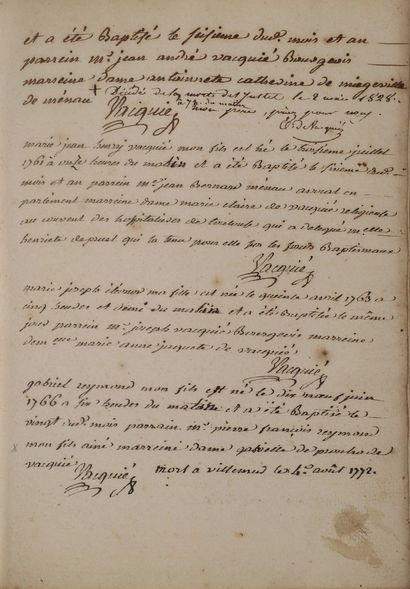 et a été Baptisé le seisieme dud. mois et an
parrein mr. jean andré vacquié Bourgeois
marreine dame antoinete catherine de miegeville
de ménau + Décédé de la mort des Justes le 2 mai 1828.
à 7 h. du matin
mon frere, priés pour nous.
Vacquié
marie jean henry vacquié mon fils est né le troisieme juillet
1761 à onze heures du matin et a été Baptisé le sixieme dud.
mois et an parrein mr. jean Bernard ménau avocat en
parlement marreine dame marie claire de vacquié religieuse
au couvent des hospitalieres de toulouse qui a delegué melle
henriete de puel qui la tenu pour elle sur les fonds Baptismaux
Vacquié
marie josephe éleonor ma fille est née le quinse avril 1763 à
cinq heures et demi du matin et a été Baptisée le même
jour parrein mr. joseph vacquié Bourgeois marreine
demelle marie anne jaquete de vacquié
Vacquié
gabriel reymond mon fils est né le dix neuf juin
1766 à six heures du matin et a été Baptisé le
vingt dud. mois parrain mr. pierre françois reymond
mon fils ainé marreine dame gabrielle de
vacquié
mort à villemur le 4e. août 1772.
Vacquié